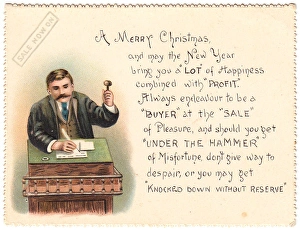 SALE NOW ON
A MERRY Christmas,
and may the New Year
bring you a "LOT" of Happiness
combined with "PROFIT."
Always endeavour to be a
"BUYER" at the "SALE"
of Pleasure, and should you get
"UNDER THE HAMMER"
of Misfortune, don't give way to
despair, or you may get
"KNOCKED DOWN WITHOUT RESERVE"